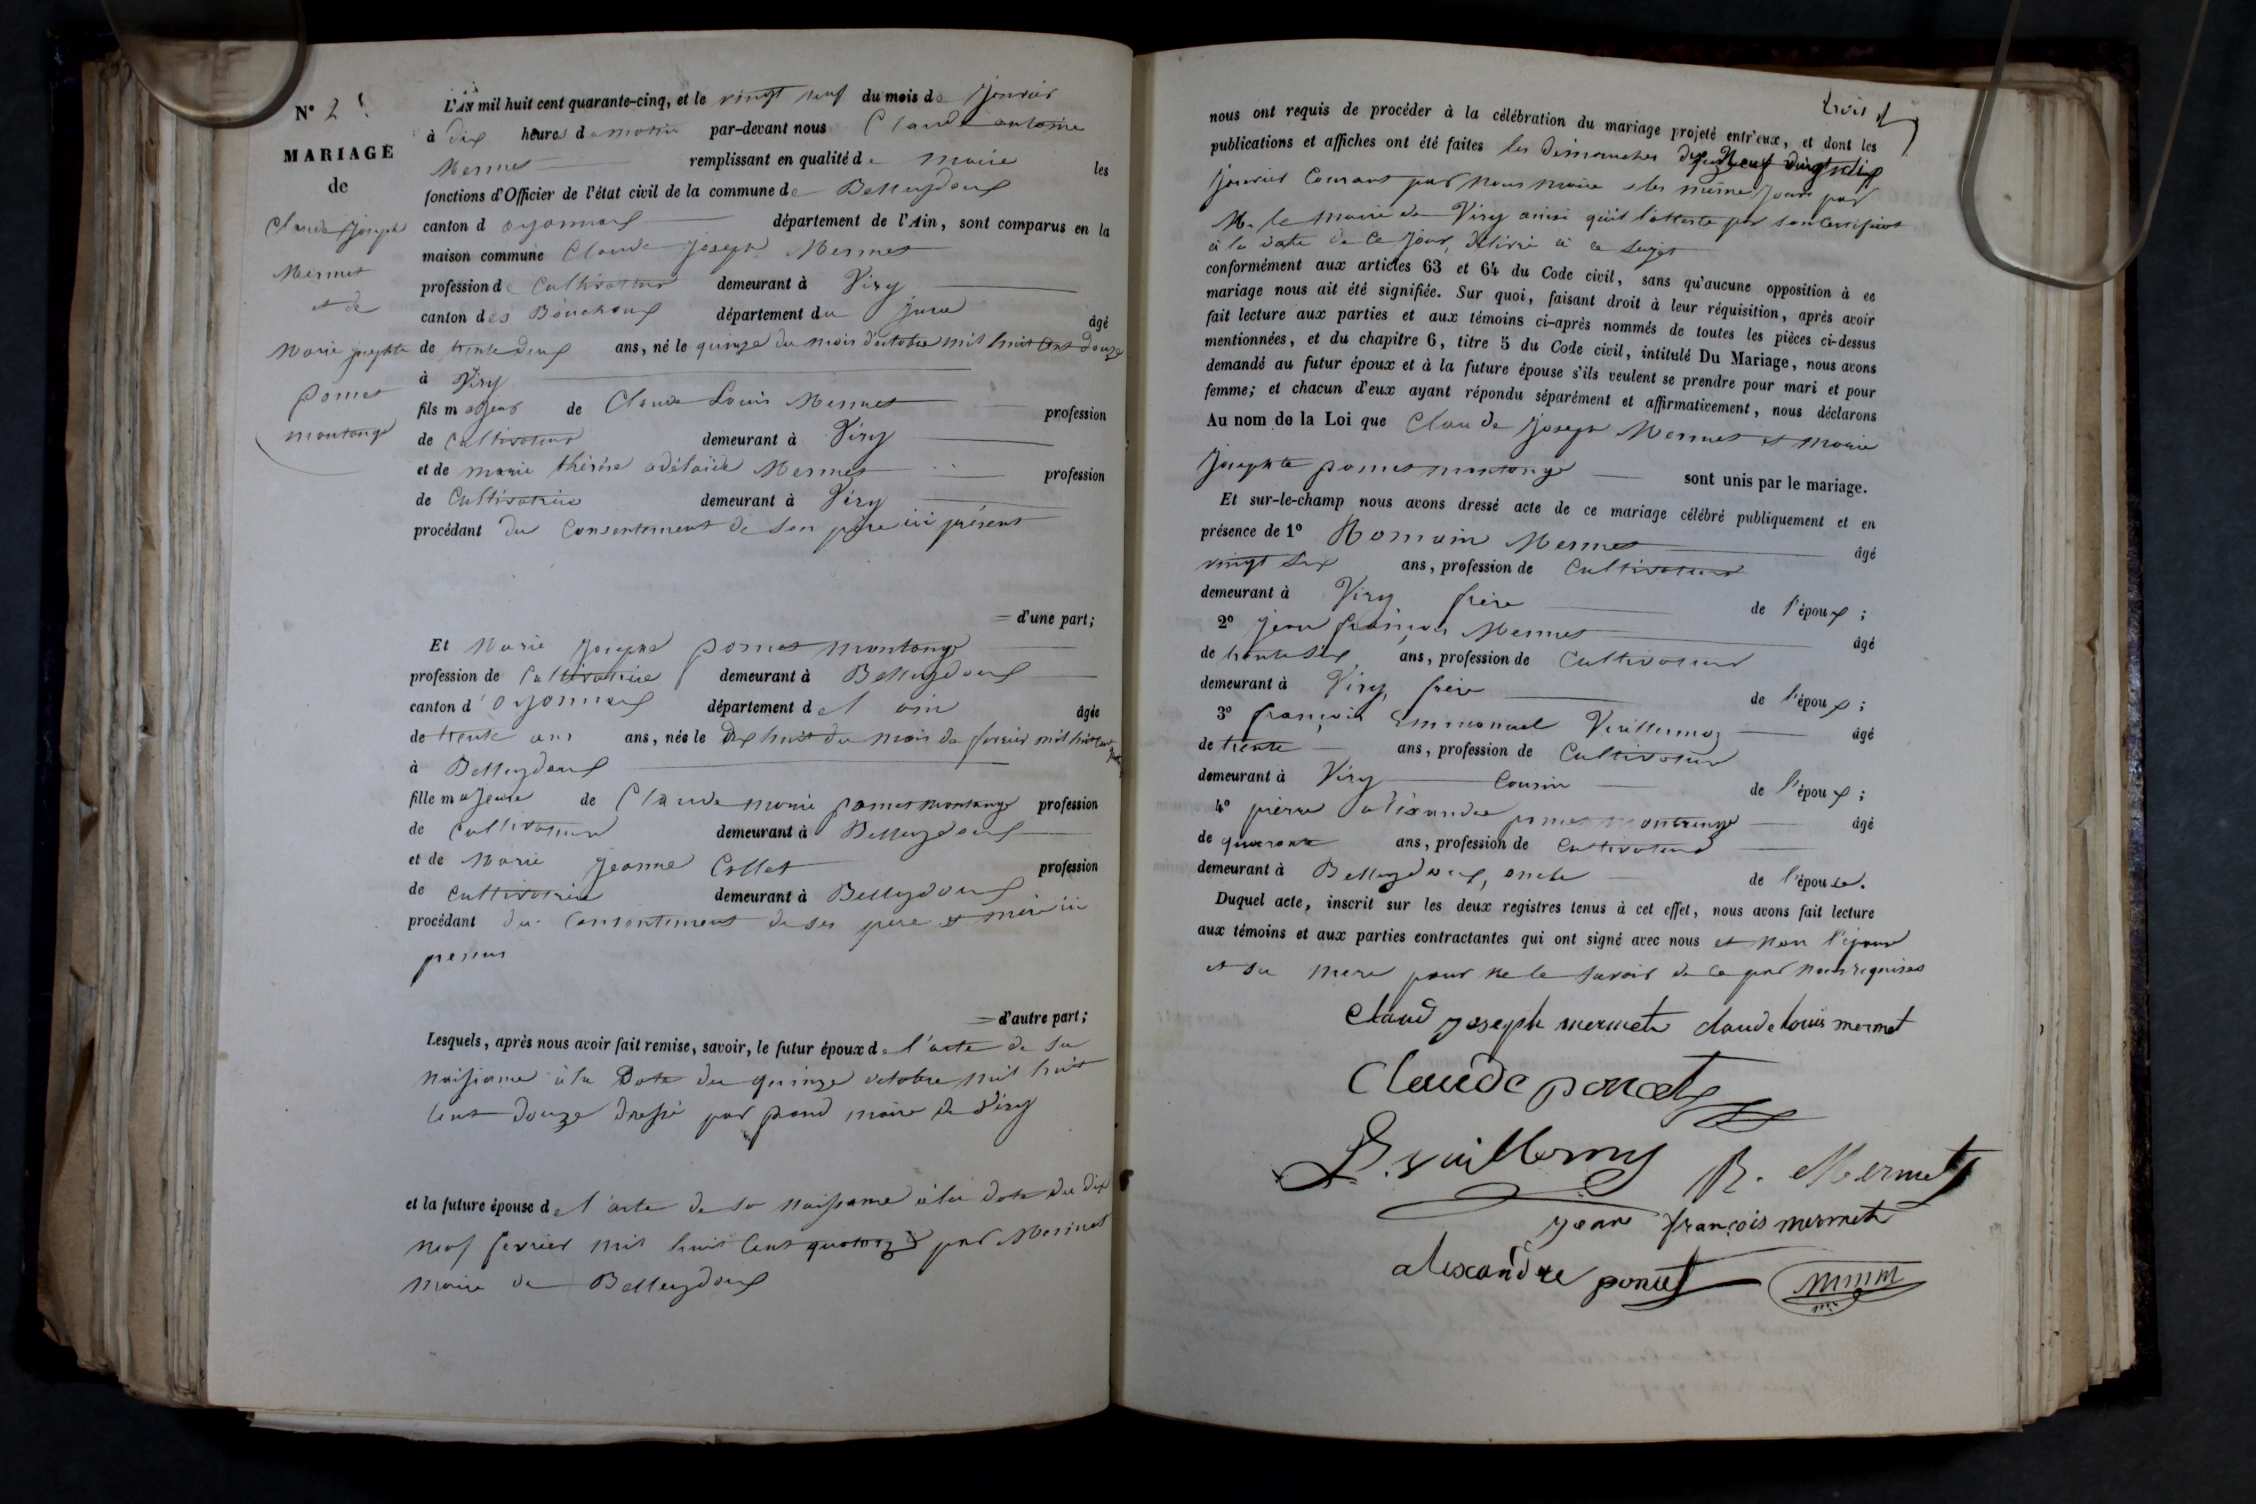 N° 2
MARIAGE
de
Claude Joseph
Mermet
et de
Marie josephte
poncet
montange
L'AN mil huit cent quarante-cinq, et le vingt neuf du mois de Janvier
à dix heures du matin par-devant nous Claude antoine
Mermet remplissant en qualité de maire les
fonctions d'Officier de l'état civil de la commune de Belleydoux
canton d'oyonnax département de l'Ain, sont comparus en la
maison commune Claude joseph Mermet
profession de Cultivateur demeurant à Viry
canton des Bouchoux département du jura âgé
de trente deux ans, né le quinze du mois d'octobre mil huit cent douze
à Viry
fils majeur de Claude Louis Mermet profession
de Cultivateur demeurant à Viry
et de marie thérèse adélaïde Mermet profession
de Cultivatrice demeurant à Viry
procédant du Consentement de son père ici présent
d'une part;
Et Marie Josephte poncet montange
profession de Cultivatrice demeurant à Belleydoux
canton d'oyonnax département de l'ain âgée
de trente ans ans, née le dix huit du mois de fevrier mil huit cent
à Belleydoux
fille majeure de Claude marie poncet montange profession
de Cultivateur demeurant à Belleydoux
et de Marie jeanne Collet profession
de Cultivatrice demeurant à Belleydoux
procédant du Consentement de ses pere et mère ici
presens
d'autre part;
Lesquels, après nous avoir fait remise, savoir, le futur époux de l'acte de sa
naissance à la Date du quinze octobre mil huit
Cent douze dressé par maire de Viry
et la future épouse de l'acte de sa naissance à la date du dix
neuf fevrier mil huit Cent quatorze par Mermet
Maire de Belleydoux
trois
nous ont requis de procéder à la célébration du mariage projeté entr'eux, et dont les
publications et affiches ont été faites les dimanches dix neuf vingt six
janvier Courant par nous maire et les même jours par
M. le maire de Viry ainsi qu'il l'atteste par son Certificat
à la date de Ce jour, délivré à ce sujet
conformément aux articles 63 et 64 du Code civil, sans qu'aucune opposition à ce
mariage nous ait été signifiée. Sur quoi, faisant droit à leur réquisition, après avoir
fait lecture aux parties et aux témoins ci-après nommés de toutes les pièces ci-dessus
mentionnées, et du chapitre 6, titre 5 du Code civil, intitulé Du Mariage, nous avons
demandé au futur époux et à la future épouse s'ils veulent se prendre pour mari et pour
femme; et chacun d'eux ayant répondu séparément et affirmativement, nous déclarons
Au nom de la Loi que Claude Joseph Mermet et Marie
Josephte poncet montange sont unis par le mariage.
Et sur-le-champ nous avons dressé acte de ce mariage célébré publiquement et en
présence de 1° Romain Mermet âgé
vingt six ans, profession de Cultivateur
demeurant à Viry frère de l'époux;
2° jean françois Mermet âgé
de trente six ans, profession de Cultivateur
demeurant à Viry, frère de l'époux;
3° françois Emmanuel Vuillermoz âgé
de trente ans, profession de Cultivateur
demeurant à Viry Cousin de l'époux;
4° pierre alexandre poncet montange âgé
de quarante ans, profession de Cultivateur
demeurant à Belleydoux, oncle de l'épouse.
Duquel acte, inscrit sur les deux registres tenus à cet effet, nous avons fait lecture
aux témoins et aux parties contractantes qui ont signé avec nous et non l'épouse
et sa mere pour ne le savoir de ce par nous requises
Claud joseph mermet claude louis mermet
Claude poncet
vuillermoz R. Mermet
jean françois mermet
alexandre poncet